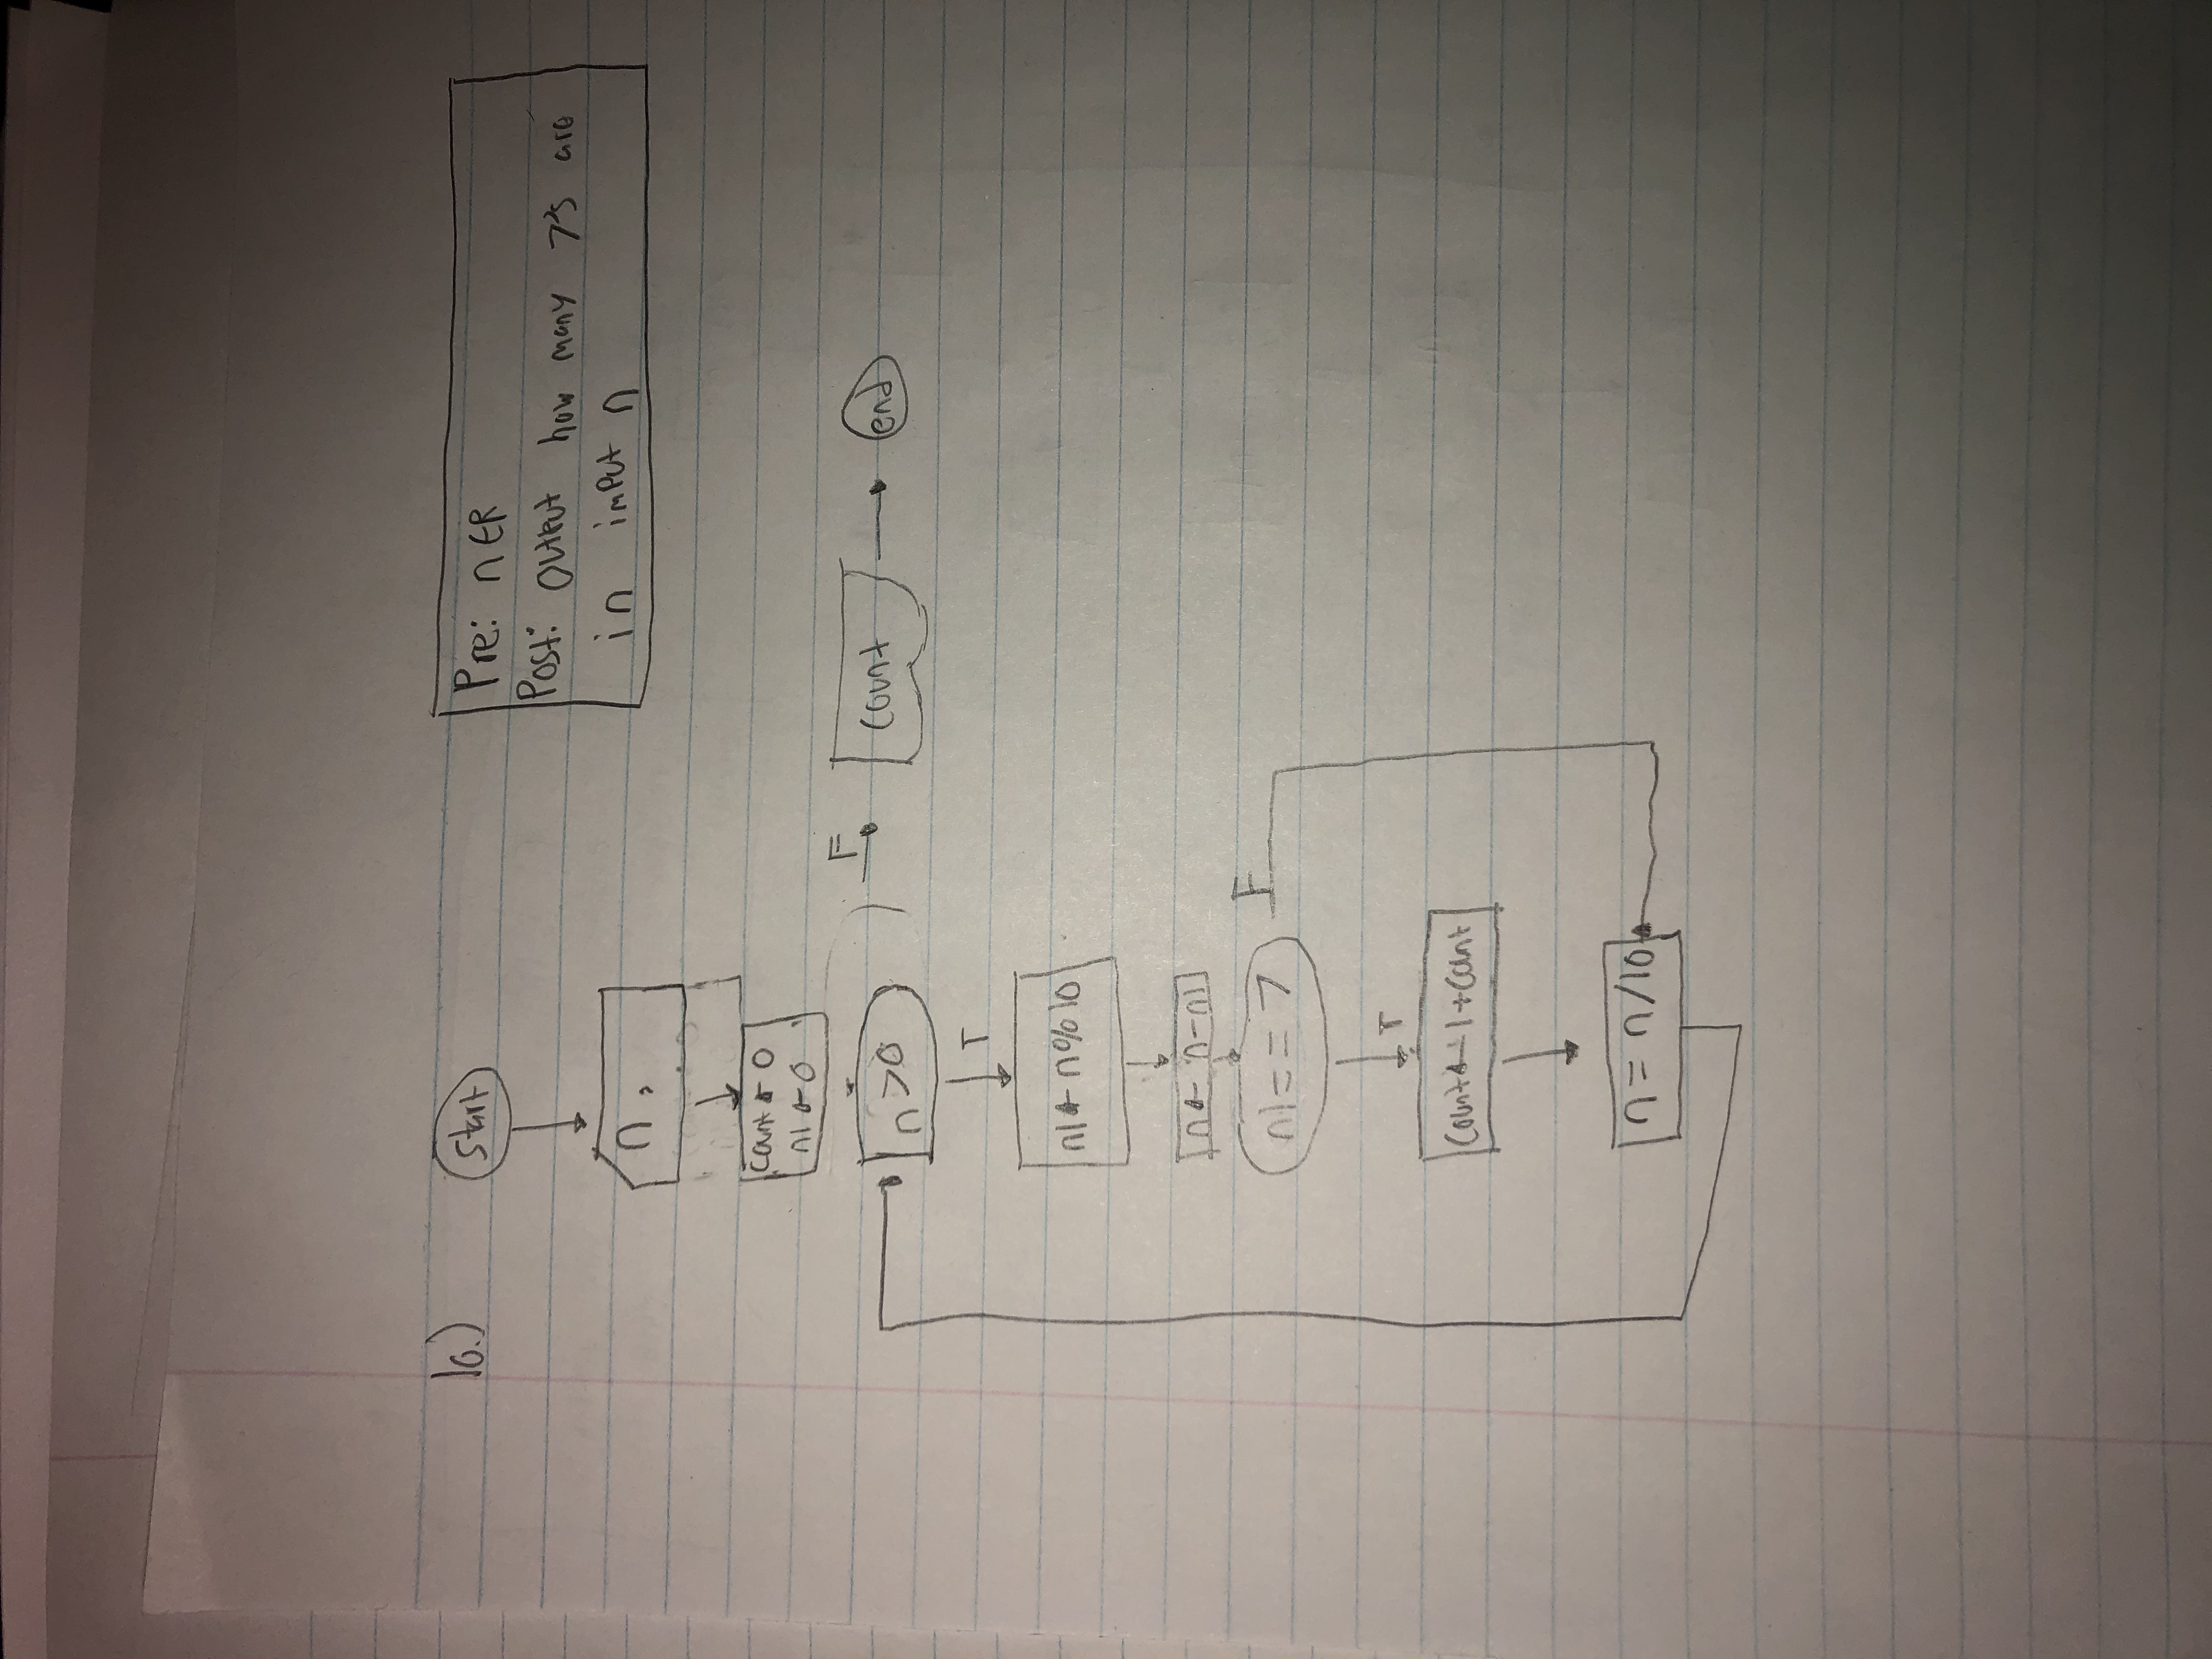 10.)
start
Pre: n ∈ R
Post: Output how many 7's are
in imput n
n,
count ← 0
n1 ← 0
n>0
F
count
end
T
n1 ← n%10
n ← n-n1
n1 == 7
F
T
count ← 1+count
n = n/10